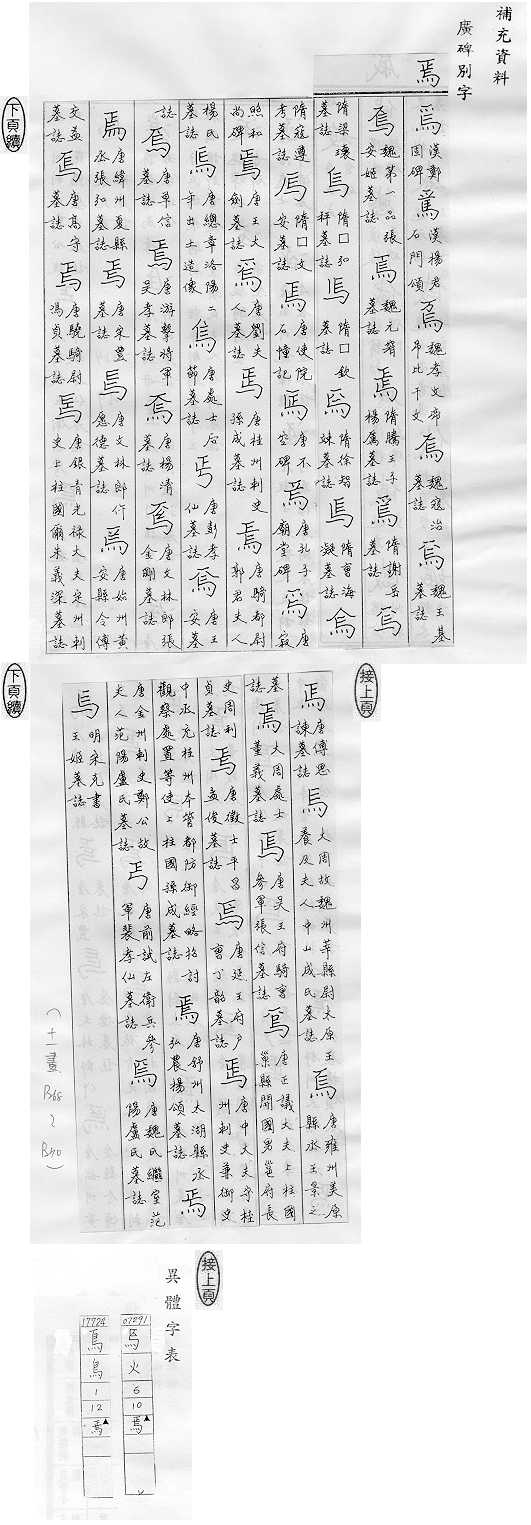 補充資料
廣碑別字
焉
焉 漢鄭固碑 焉 漢楊君石門頌 焉 魏孝文帝弔比干文 焉 魏寇治墓誌 焉 魏王基墓誌
焉 魏第一品張安姬墓誌 焉 魏元墓誌 焉 隋騰王子楊厲墓誌 焉 隋謝岳墓誌 焉
隋梁瓌墓誌 焉 隋囗弘秤墓誌 焉 隋囗欽 焉 隋徐智竦墓誌 焉 隋曹海凝墓誌 焉
隋寇遵考墓誌 焉 隋囗文安墓誌 焉 唐使院石幢記 焉 唐不空碑 焉 唐孔子廟堂碑 焉 唐寂
照和尚碑 焉 唐王大劍墓誌 焉 唐劉夫人墓誌 焉 唐桂州刺史孫成墓誌 焉 唐騎都尉郭君夫人
楊氏墓誌 焉 唐總章洛陽二年出土造像 焉 唐處士節墓誌 丐 唐彭孝仙墓誌 焉 唐王安墓
誌 焉 唐卓信墓誌 焉 唐游擊將軍吳孝墓誌 焉 唐楊清墓誌 焉 唐文林郎張金剛墓誌
焉 唐絳州夏縣丞張弘墓誌 焉 唐宋璽墓誌 焉 唐文林郎作愿德墓誌 焉 唐始州黃安縣令傅
文益墓誌 焉 唐高守墓誌 焉 唐驍騎尉馮貞墓誌 焉 唐銀青光祿大夫定州刺史上柱國爾朱義深墓誌
下頁續
接上頁
焉 唐傅思諫墓誌 焉 大周故魏州莘縣尉太原王養及夫人中山成氏墓誌 焉 唐雍州美原縣丞王景之
墓誌 焉 大周處士董義墓誌 焉 唐吳王府騎曹參軍張信墓誌 焉 唐正議大夫上柱國巢縣開國男邕府長
史周利貞墓誌 焉 唐徵士平昌孟俊墓誌 焉 唐延王府戶曹丁韶墓誌 焉 唐中大夫守桂州刺史兼御史
中丞充桂州本管都防御經略招討觀察處置等使上柱國孫成墓誌 焉 唐舒州太湖縣丞弘農楊頌墓誌 焉
唐金州刺史鄭公故夫人范陽盧氏墓誌 丐 唐前試左衛兵參軍裴孝仙墓誌 焉 唐魏氏繼室范陽盧氏墓誌
焉 明宋克書王姬墓誌
(十一畫 P.168 ~ P.170)
下頁續
接上頁
異體字表
07291 焉 火 6 10 焉▲
17724 焉 鳥 1 12 焉▲